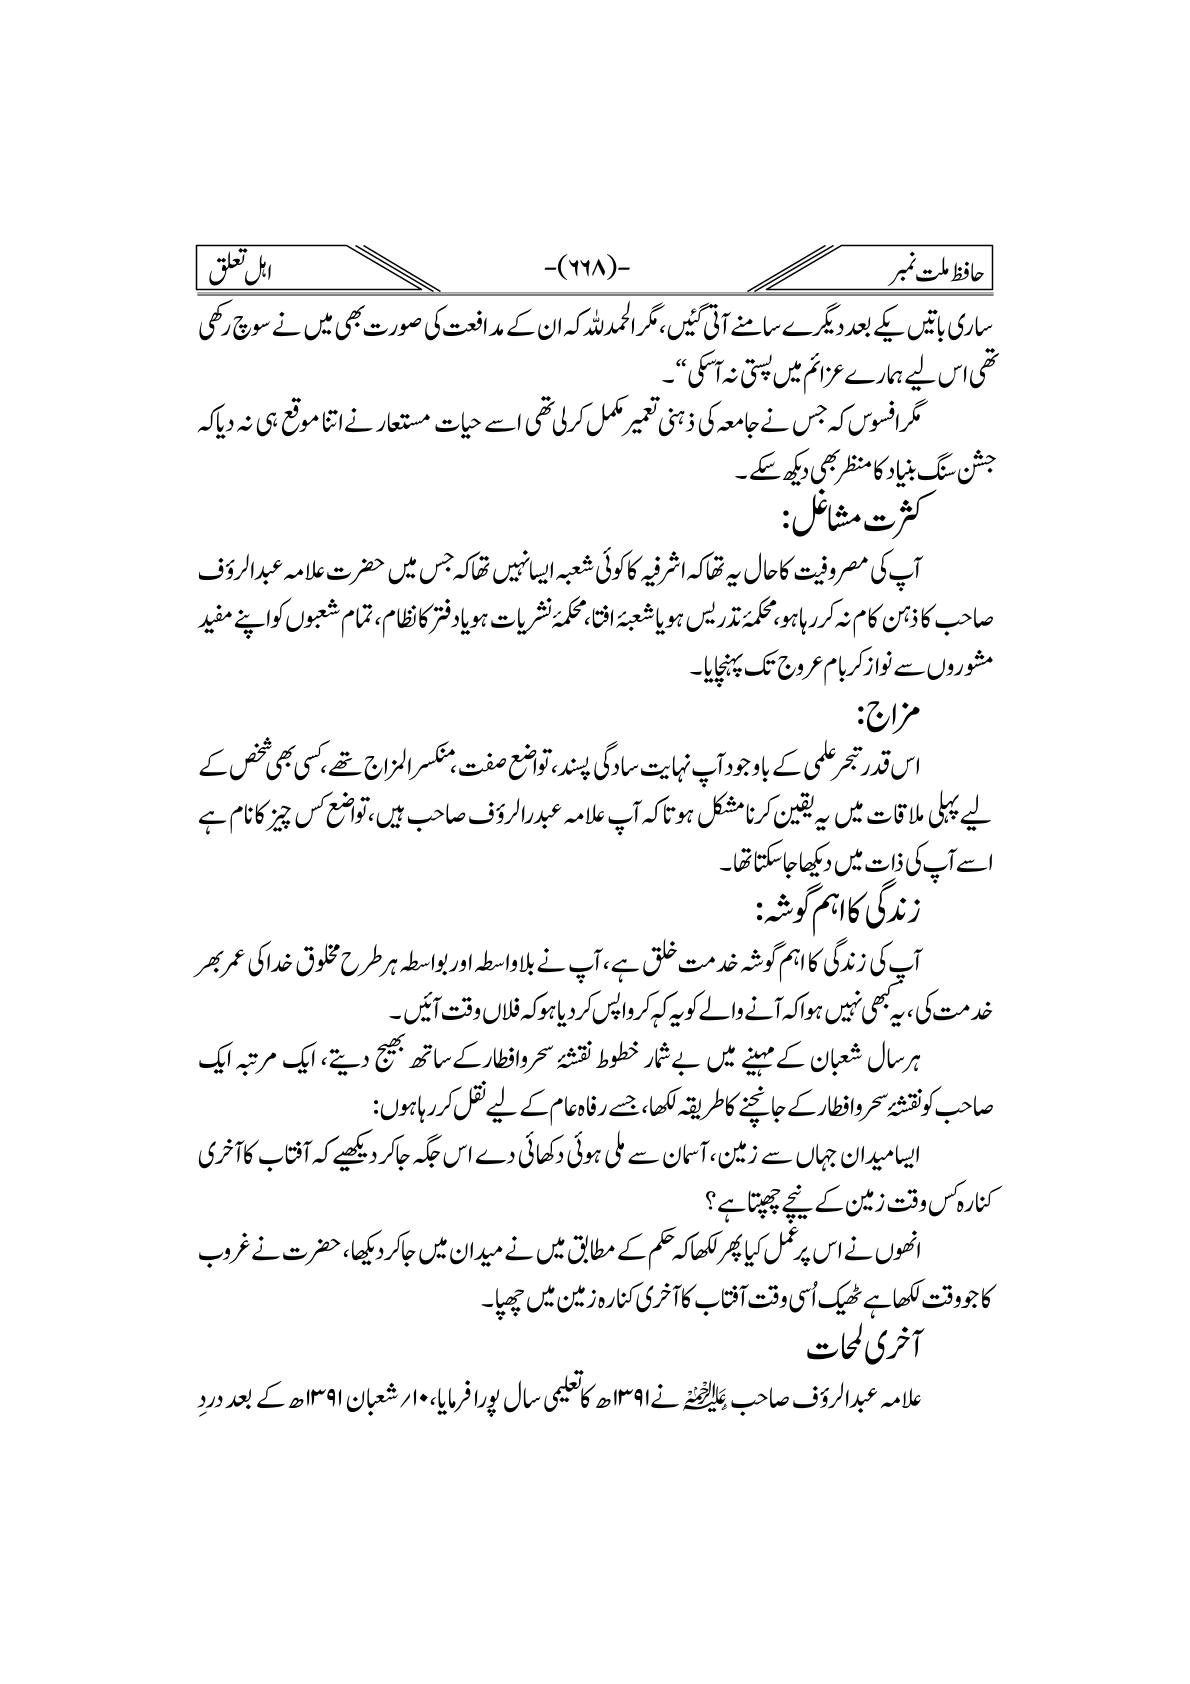 حافظ ملت نمبر
-(۶۶۸)-
اہل تعلق
ساری باتیں یکے بعد دیگرے سامنے آتی گئیں، مگر الحمد للہ کہ ان کے مدافعت کی صورت بھی میں نے سوچ رکھی
تھی اس لیے ہمارے عزائم میں پستی نہ آسکی“۔
مگر افسوس کہ جس نے جامعہ کی ذہنی تعمیر مکمل کر لی تھی اسے حیات مستعار نے اتنا موقع ہی نہ دیا کہ
جشن سنگ بنیاد کا منظر بھی دیکھ سکے۔
کثرت مشاغل:
آپ کی مصروفیت کا حال یہ تھا کہ اشرفیہ کا کوئی شعبہ ایسا نہیں تھا کہ جس میں حضرت علامہ عبد الرؤف
صاحب کا ذہن کام نہ کر رہا ہو، محکمۂ تدریس ہو یا شعبۂ افتا، محکمۂ نشریات ہو یا دفتر کا نظام، تمام شعبوں کو اپنے مفید
مشوروں سے نواز کر بام عروج تک پہنچایا۔
مزاج:
اس قدر تبحر علمی کے باوجود آپ نہایت سادگی پسند، تواضع صفت، منکسر المزاج تھے، کسی بھی شخص کے
لیے پہلی ملاقات میں یہ یقین کرنا مشکل ہوتا کہ آپ علامہ عبدرالرؤف صاحب ہیں، تواضع کس چیز کا نام ہے
اسے آپ کی ذات میں دیکھا جا سکتا تھا۔
زندگی کا اہم گوشہ:
آپ کی زندگی کا اہم گوشہ خدمت خلق ہے، آپ نے بلاواسطہ اور بواسطہ ہر طرح مخلوق خدا کی عمر بھر
خدمت کی، یہ کبھی نہیں ہوا کہ آنے والے کو یہ کہہ کر واپس کر دیا ہو کہ فلاں وقت آئیں۔
ہر سال شعبان کے مہینے میں بے شمار خطوط نقشۂ سحر و افطار کے ساتھ بھیج دیتے، ایک مرتبہ ایک
صاحب کو نقشۂ سحر و افطار کے جانچنے کا طریقہ لکھا، جسے رفاہ عام کے لیے نقل کر رہا ہوں:
ایسا میدان جہاں سے زمین، آسمان سے ملی ہوئی دکھائی دے اس جگہ جا کر دیکھیے کہ آفتاب کا آخری
کنارہ کس وقت زمین کے نیچے چھپتا ہے؟
انھوں نے اس پر عمل کیا پھر لکھا کہ حکم کے مطابق میں نے میدان میں جا کر دیکھا، حضرت نے غروب
کا جو وقت لکھا ہے ٹھیک اُسی وقت آفتاب کا آخری کنارہ زمین میں چھپا۔
آخری لمحات
علامہ عبد الرؤف صاحب علیہ الرحمہ نے ۱۳۹۱ھ کا تعلیمی سال پورا فرمایا، ۱۰؍ شعبان ۱۳۹۱ھ کے بعد دردِ